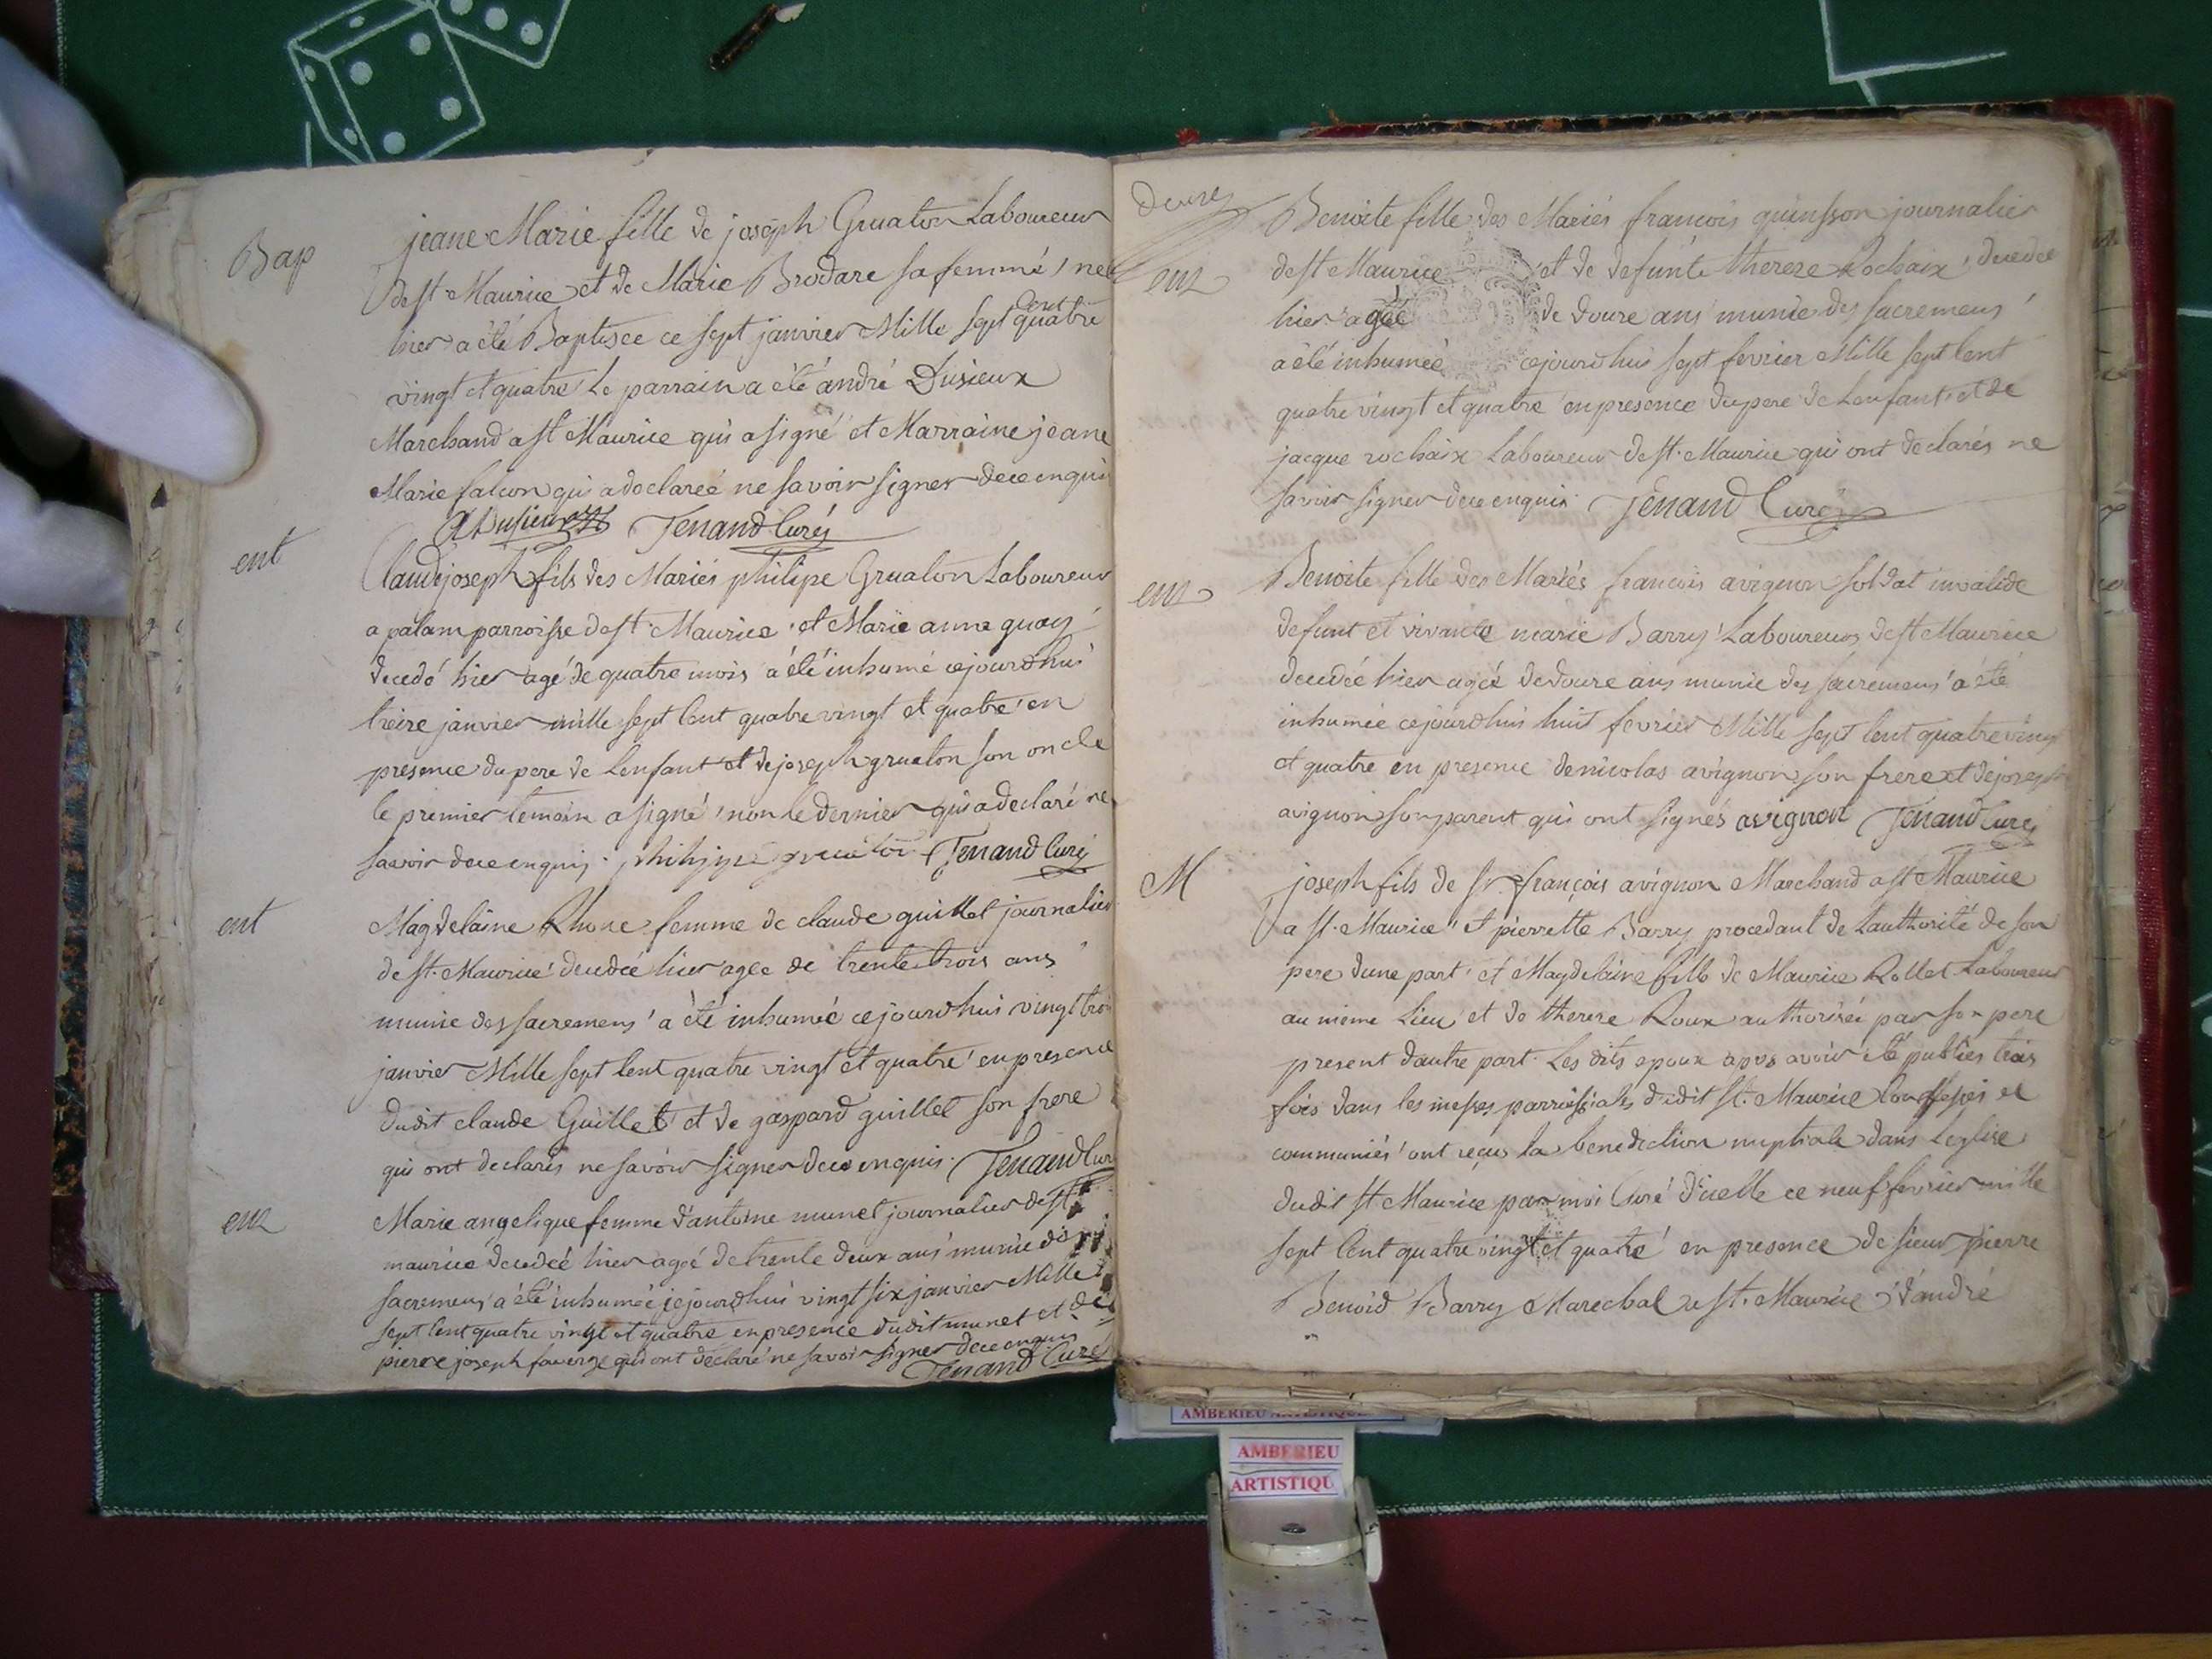 Bap
jeane Marie fille de joseph Gruaton Laboureur
de st Maurice et de Marie Brodare sa femme nee
hier a été Baptisée ce sept janvier Mille sept cent quatre
vingt et quatre Le parrain a été andré Dusieux
Marchand a st Maurice qui a signé et Marraine jeane
Marie falcon qui a declareé ne savoir signer de ce enquis
A Dusieux Tenand Curé
ent
Claude joseph fils des Mariés philipe Gruaton Laboureur
a palam parroisse de st Maurice et Marie anne guay
decedé hier agé de quatre mois a été inhumé cejourdhui
treize janvier mille sept Cent quatre vingt et quatre en
presence du pere de Lenfant et de joseph gruaton son oncle
le premier temoin a signé non le dernier qui a declaré ne
savoir de ce enquis philippe gruaton Tenand Curé
ent
Magdelaine Rhone femme de claude guillet journalier
de st. Maurice decedeé hier agee de trente trois ans
munie des sacremens a été inhumeé cejourdhui vingt trois
janvier Mille sept Cent quatre vingt et quatre en presence
dudit claude Guillet et de gaspard guillet son frere
qui ont declarés ne savoir signer de ce enquis. Tenand Cur
ent
Marie angelique femme d'antoine munet journalier de st
maurice decedeé hier ageé de trente deux ans munie des
sacremens a été inhumeé cejourdhui vingt six janvier Mille
sept Cent quatre vingt et quatre en presence dudit munet et de
pierre joseph qui ont declaré ne savoir signer de ce enquis
Tenand Curé
ent
Benoite fille des Mariés francois quinsson journalier
de st Maurice et de defunte therese Rochaix decedeé
hier ageé de douze ans munie des sacremens
a été inhumeé cejourdhui sept fevrier Mille sept Cent
quatre vingt et quatre en presence du pere de Lenfant et de
jacque rochaix Laboureur de st. Maurice qui ont declarés ne
savoir signer de ce enquis Tenand Curé
ent
Benoite fille des Mariés francois avignon soldat invalide
defunt et vivante marie Barry Laboureurs de st Maurice
decedeé hier ageé de douze ans munie des sacremens a été
inhumée cejourdhui huit fevrier Mille sept Cent quatre ving
et quatre en presence de nicolas avignon son frere et de joseph
avignon son parent qui ont signés avignon Tenand Curé
M
joseph fils de sr. françois avignon Marchand a st Maurice
a st. Maurice et pierrette Barry procedant de Lauthorité de son
pere dune part et Magdelaine fille de Maurice Rollet Laboureur
au même Lieu et de therese Roux authoriseé par son pere
present dautre part. Les dits epoux apres avoir été publiés trois
fois dans les messes parroissiales dudit st. Maurice Confessés et
communiés ont reçu la benediction nuptiale dans Leglise
dudit st Maurice par moi Curé d'icelle ce neuf fevrier mille
sept Cent quatre vingt et quatre en presence de sieur pierre
Benoid Barry Marechal a st. Maurice d'andré
AMBERIEU ARTISTIQUE
AMBERIEU
ARTISTIQU